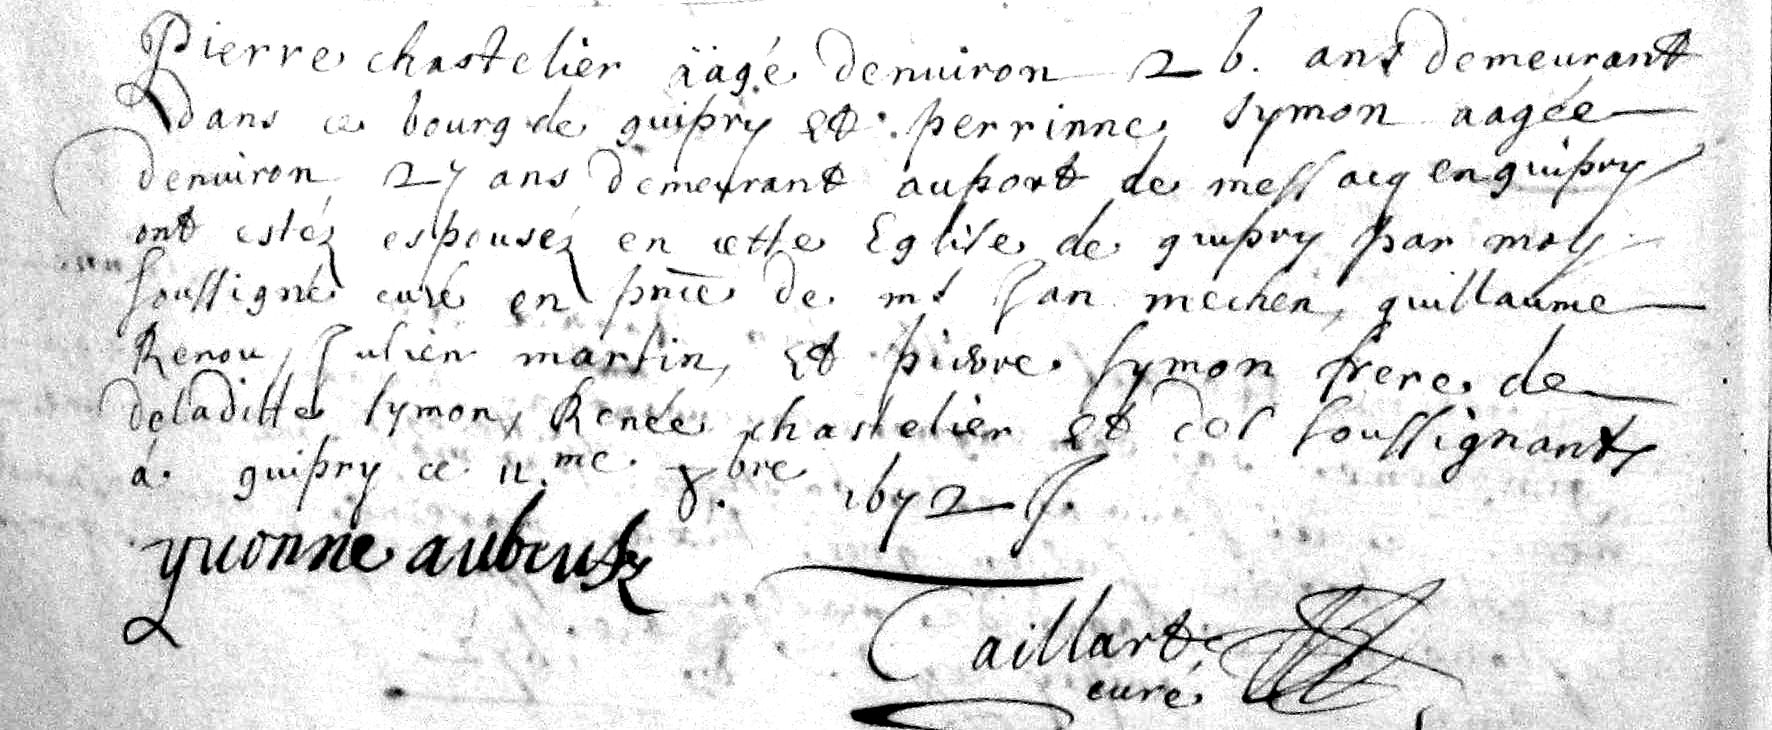 Pierre chastelier äagé denuiron 26. ans demeurant
dans ce bourg de guipry et perrinne symon aagée
denuiron 27 ans demeurant au port de messacq en guipry
ont estéz espouséz en cette Eglise de guipry par moy
soussigné curé en pnce de ms Jan mechen, guillaume
Renou, Julien martin, et pierre symon frere de
deladitte symon, Renée chastelier et des soussignants
a. guipry ce 12.me 8.bre 1672 J.
yuonne
Taillart
curé